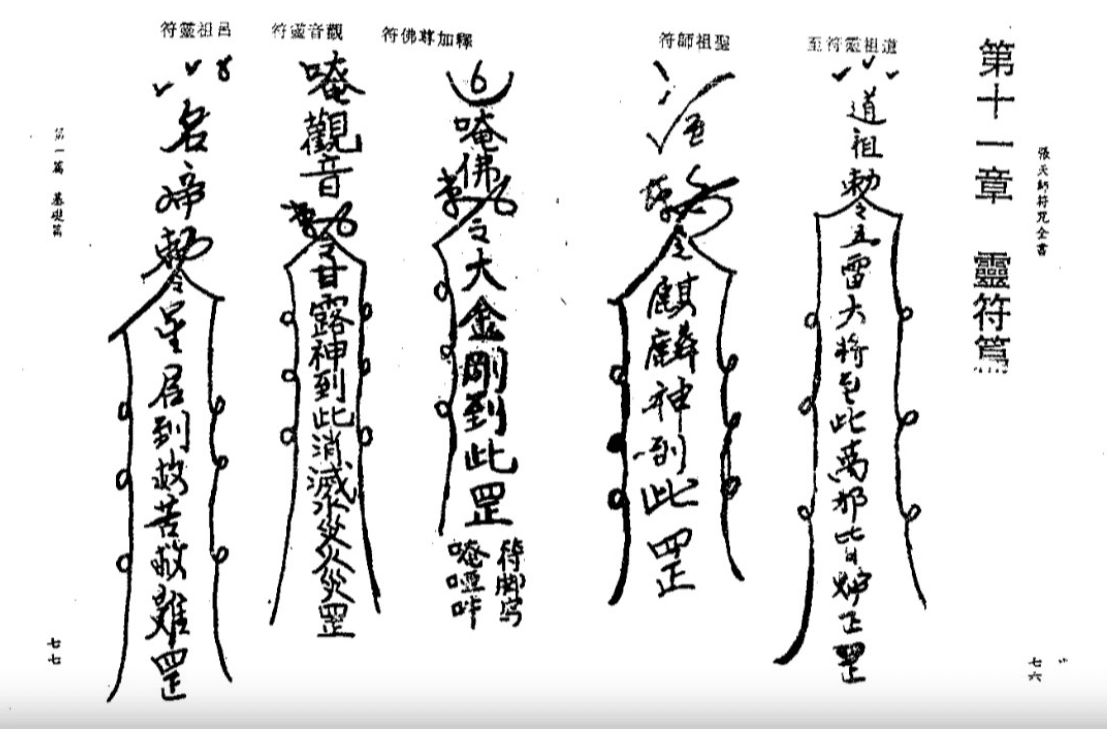 張天師符咒全書
第十一章 靈符篇
道祖靈符至
道祖勅令五雷大將到此萬邪皆歸正罡
七六
聖祖師符
令麒麟神到此罡
釋加尊佛符
唵佛
令大金剛到此罡
符腳寫
唵啞吽
觀音靈符
唵觀音
令甘露神到此消滅水災火災罡
呂祖靈符
名啼勅令星君到救苦救難罡
第一篇 基礎篇
七七